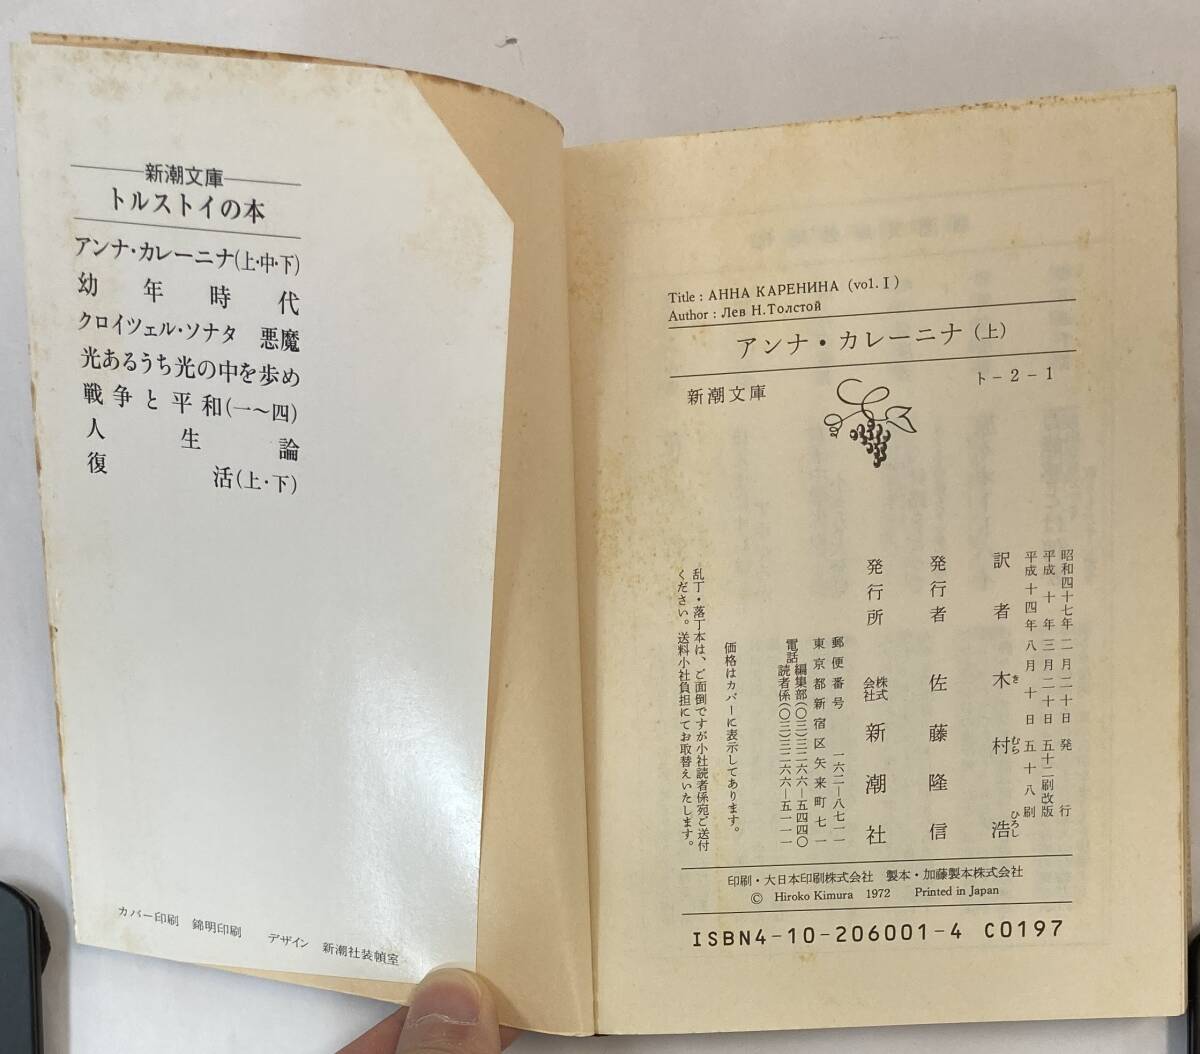 新潮文庫
トルストイの本
アンナ・カレーニナ(上・中・下)
幼年時代
クロイツェル・ソナタ 悪魔
光あるうち光の中を歩め
戦争と平和(一〜四)
人生論
復活(上・下)
カバー印刷 錦明印刷 デザイン 新潮社装幀室
Title : АННА КАРЕНИНА (vol. I)
Author : Лев Н. Толстой
アンナ・カレーニナ(上)
新潮文庫
ト-2-1
昭和四十七年二月二十日発行
平成十年三月二十日五十二刷改版
平成十四年八月十日五十八刷
訳者 木村浩
き むら ひろし
発行者 佐藤隆信
発行所 株式会社 新潮社
郵便番号 一六二―八七一一
東京都新宿区矢来町七一
電話 編集部(〇三)三二六六―五四四〇
読者係(〇三)三二六六―五一一一
価格はカバーに表示してあります。
乱丁・落丁本は、ご面倒ですが小社読者係宛ご送付
ください。送料小社負担にてお取替えいたします。
印刷・大日本印刷株式会社 製本・加藤製本株式会社
© Hiroko Kimura 1972 Printed in Japan
ISBN4-10-206001-4 C0197